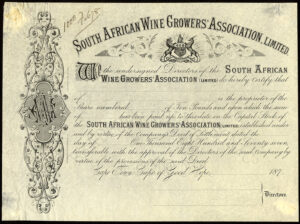 SOUTH AFRICAN WINE GROWERS' ASSOCIATION, LIMITED
We the undersigned Directors of the SOUTH AFRICAN
WINE GROWERS' ASSOCIATION (LIMITED) do hereby Certify that
is the proprietor of the
Share numbered of Ten Pounds and upon which the sum
of has been paid up to this date in the Capital Stock of
the SOUTH AFRICAN WINE GROWERS' ASSOCIATION, LIMITED, established under
and by virtue of the Company's Deed of Settlement dated the
day of One Thousand Eight Hundred and Seventy seven,
transferable with the approval of the Directors of the said Company by
virtue of the provisions of the said Deed.
Cape Town, Cape of Good Hope, 187
Directors.